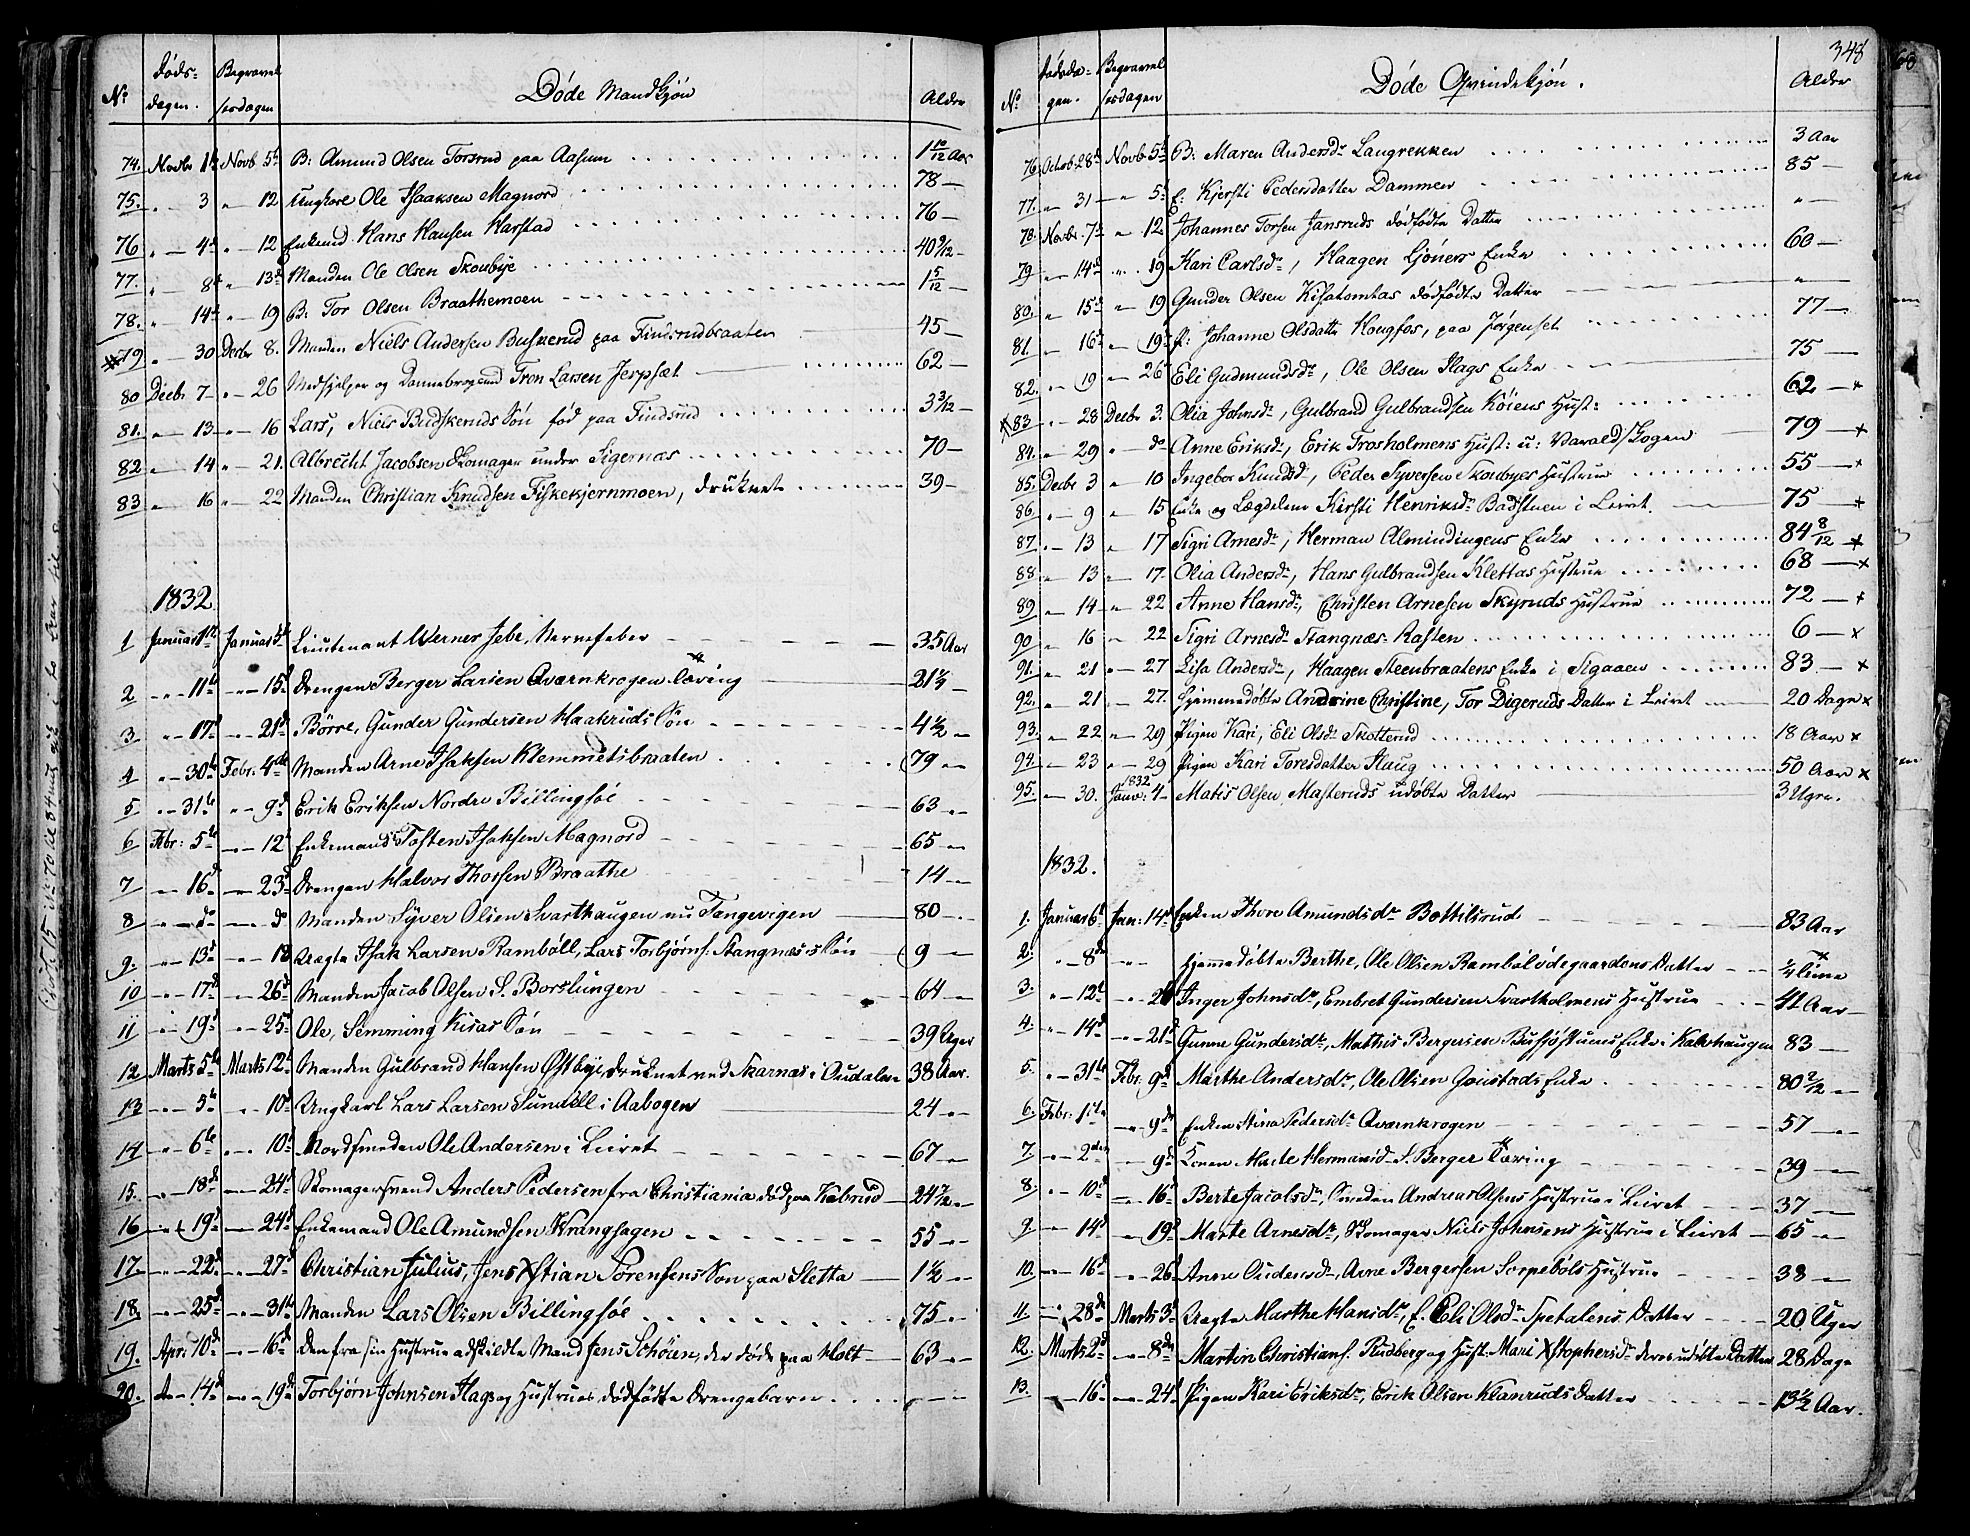 No Døds-dagen. Begravelsesdagen Døde Mandkjøn Alder
74. Novbr 1ste Novb 5te B: Amund Olsen Torsrud paa Aasum 1 10/12 Aar
75. " 3 " 12 Ungkarl Ole Isaaksen Magnord 78 —
76 " 4de " 12 Enkemd Hans Hansen Harstad 76 —
77. " 8de " 13de Manden Ole Olsen Skoubye 40 9/12 —
78. " 14de " 19 B: Tor Olsen Braathemoen 1 5/12 —
79 " 30 Decbr 8. Manden Niels Andersen Buskerud paa Findsrudbraaten 45 —
80 Decbr 7 " 26 Medhjelper og Dannebrogmd Tron Larsen Jerpset 62 —
81. " 13 " 16 Lars, Niels Budskeruds Søn fød paa Findsrud 3 3/12 —
82 " 14 " 21. Albrecht Jacobsen Skomager under Sigernæs 70 —
83 " 16 " 22 Manden Christian Knudsen Fiskekjernmoen, druknet 39 —
1832
1 Januar 1ste Januar Lieutenant Werner Jebe, Nervefeber 35 Aar
2 " 11te " 15de Drengen Berger Larsen Qværnkrogen Tæring 21 1/4 —
3 " 17de " 21de Børre, Gunder Gundersen Haakruds Søn 4 1/2 —
4 " 30te Febr: 4de Manden Arne Isaksen Klemmetsbraaten 79 —
5 " 31te " 9de Erik Eriksen Nordre Billingsøe 63 —
6 Febr: 5te " 12te Enkemand Tosten Isaksen Magnord 65 —
7 " 16de " 23de Drengen Halvor Thorsen Braathe 14 —
8 " do " do Manden Syver Olsen Svarthaugen nu Tangevigen 80 —
9. " 13de " 18 Uægte Isak Larsen Rambøll, Lars Torbjørns. Stangnæs's Søn 9 —
10 " 17de " 26de Manden Jacob Olsen S. Borslungen 64 —
11 " 19de " 25de Ole, Semming Kisas Søn 39 Uger
12 Marts 5te Marts 12te Manden Gulbrand Hansen Østbye, druknet ved Skarnæs i Oudalen 38 Aar.
13 " 5te " 10de Ungkarl Lars Larsen Sundell i Aabogen 24 —
14 " 6te " 10de Ole Andersen i Leiret 67 —
15. " 18de " 24de Skomagersvend Anders Pedersen fra Christiania død paa Kabrud 24 1/2 —
16 " 19de " 24de Enkemand Ole Amundsen Krangsagen 55 —
17. " 22de " 27de Christian Julius, Jens Xstian Sørensens Søn paa Sletta 1 1/2 —
18. " 25de " 31te Manden Lars Olsen Billingsøe 75 —
19. Apr: 10de " 16de Den fra sin Hustrue adskildte Mand Jens Schøien, der døde paa Holt 63 —
20. " 14de " 19de Torbjørn Johnsen Hags og Hustrues dødfødte Drengebarn —
348
No Dødsda-gen. Begravelsesdagen Døde Qvindekjøn. Alder
76 Octob. 28de Novb. 5te B: Maren Andersdr Langrekken 3 Aar
77. " 31 " 5te E: Kjersti Pedersdatter Dammen 85 —
78. Novbr. 7de " 12 Johannes Torsen Jansruds dødfødte Datter "
79 " 14de " 19 Kari Carlsdr, Haagen Ljøners Enke 60 —
80. " 15de " 19 Gunder Olsen Kisatomtas dødfødte Datter "
81. " 16de " 19de Johanne Olsdatter Kongfos, paa Jørgenset 77 —
82. " 19 " 26 Eli Gudmundsdr, Ole Olsen Hags Enke 75 —
83 " 28 Decbr 3. Olia Johnsdr, Gulbrand Gulbrandsen Køiens Hust: 62 —
84. " 29 " do Anne Eriksdr, Erik Trosholmens Hust: u: Varaldskogen 79 —
85. Decbr 3 " 10 Ingebor Knudsdr, Peder Syversen Skoubyes Hustrue 55 —
86. " 9 " 15 Enke og Lægdslem Kirsti Henriksdr Badstuen i Leiret. 75 —
87. " 13 " 17 Sigri Arnesdr, Herman Almindingens Enke 84 8/12 —
88 " 13 " 17. Olia Andersdr, Hans Gulbrandsen Klettas Hustrue 68 —
89 " 14 " 22 Anne Hansdr, Christen Arnesen Skyruds Hustrue 72 —
90 " 16 " 22 Sigri Arnesdr Stangnæs-Rasten 6 —
91. " 21 " 27 Lisa Andersdr, Haagen Steenbraatens Enke i Sigaaen 83 —
92. " 21 " 27. Hjemmedøbte Andrine Christine, Tor Digeruds Datter i Leiret 20 Dage
93. " 22 " 29 Pigen Kari, Eli Olsdr Skotterud 18 Aar
94. " 23 " 29 Pigen Kari Toresdatter Haug 50 Aar
95. " 30. 1832 Janv: 4 Matis Olsen Masteruds udøbte Datter 3 Ugr.
1832.
1. Januar 6te Jan: 14de Enken Thore Amundsdr Bottilsrud 83 Aar
2. " 8de " Hjemmedøbte Berthe, Ole Olsen Rambøl ødegaardens Datter 1/4 Time
3. " 12te " Inger Johnsdr, Embret Gundersen Svartholmens Hustrue 41 Aar
4. " 14de " 21de Gunne Gundersdr, Mathis Bergersen Enke i Kalvhaugen 83 —
5. " 31te Febr: 9de Marthe Andersdr, Ole Olsen Jonstads Enke 80 2/12 —
6. Febr: 1ste " 9de Enken Stina Pedersdr Qværnkrogen 57 —
7. " 2den " 9de Konen Marte Hermansdr S. Berger Tæring 39 —
8. " 10de " 16de Berte Jacobsdr, Andreas Olsens Hustrue i Leiret 37 —
9. " 14de " 19de Marte Arnesdr, Skomager Niels Johnsens Hustrue i Leiret 65 —
10. " 16de " 26de Anne Oudensdr, Arne Bergersen Sorpebøls Hustrue 38 —
11. " 28de Marts 3de Uægte Marthe Hansdr, E. Eli Olsdr Spetalens Datter 20 Uger
12. Marts 2den " 8de Martin Christians. Rudberg og Hust: Mari Xstophersdr deres udøbte Datter 28 Dage
13. " 16de " 24de Pigen Kari Eriksdr, Erik Olsen Klanruds Datter 13 1/2 Aar.